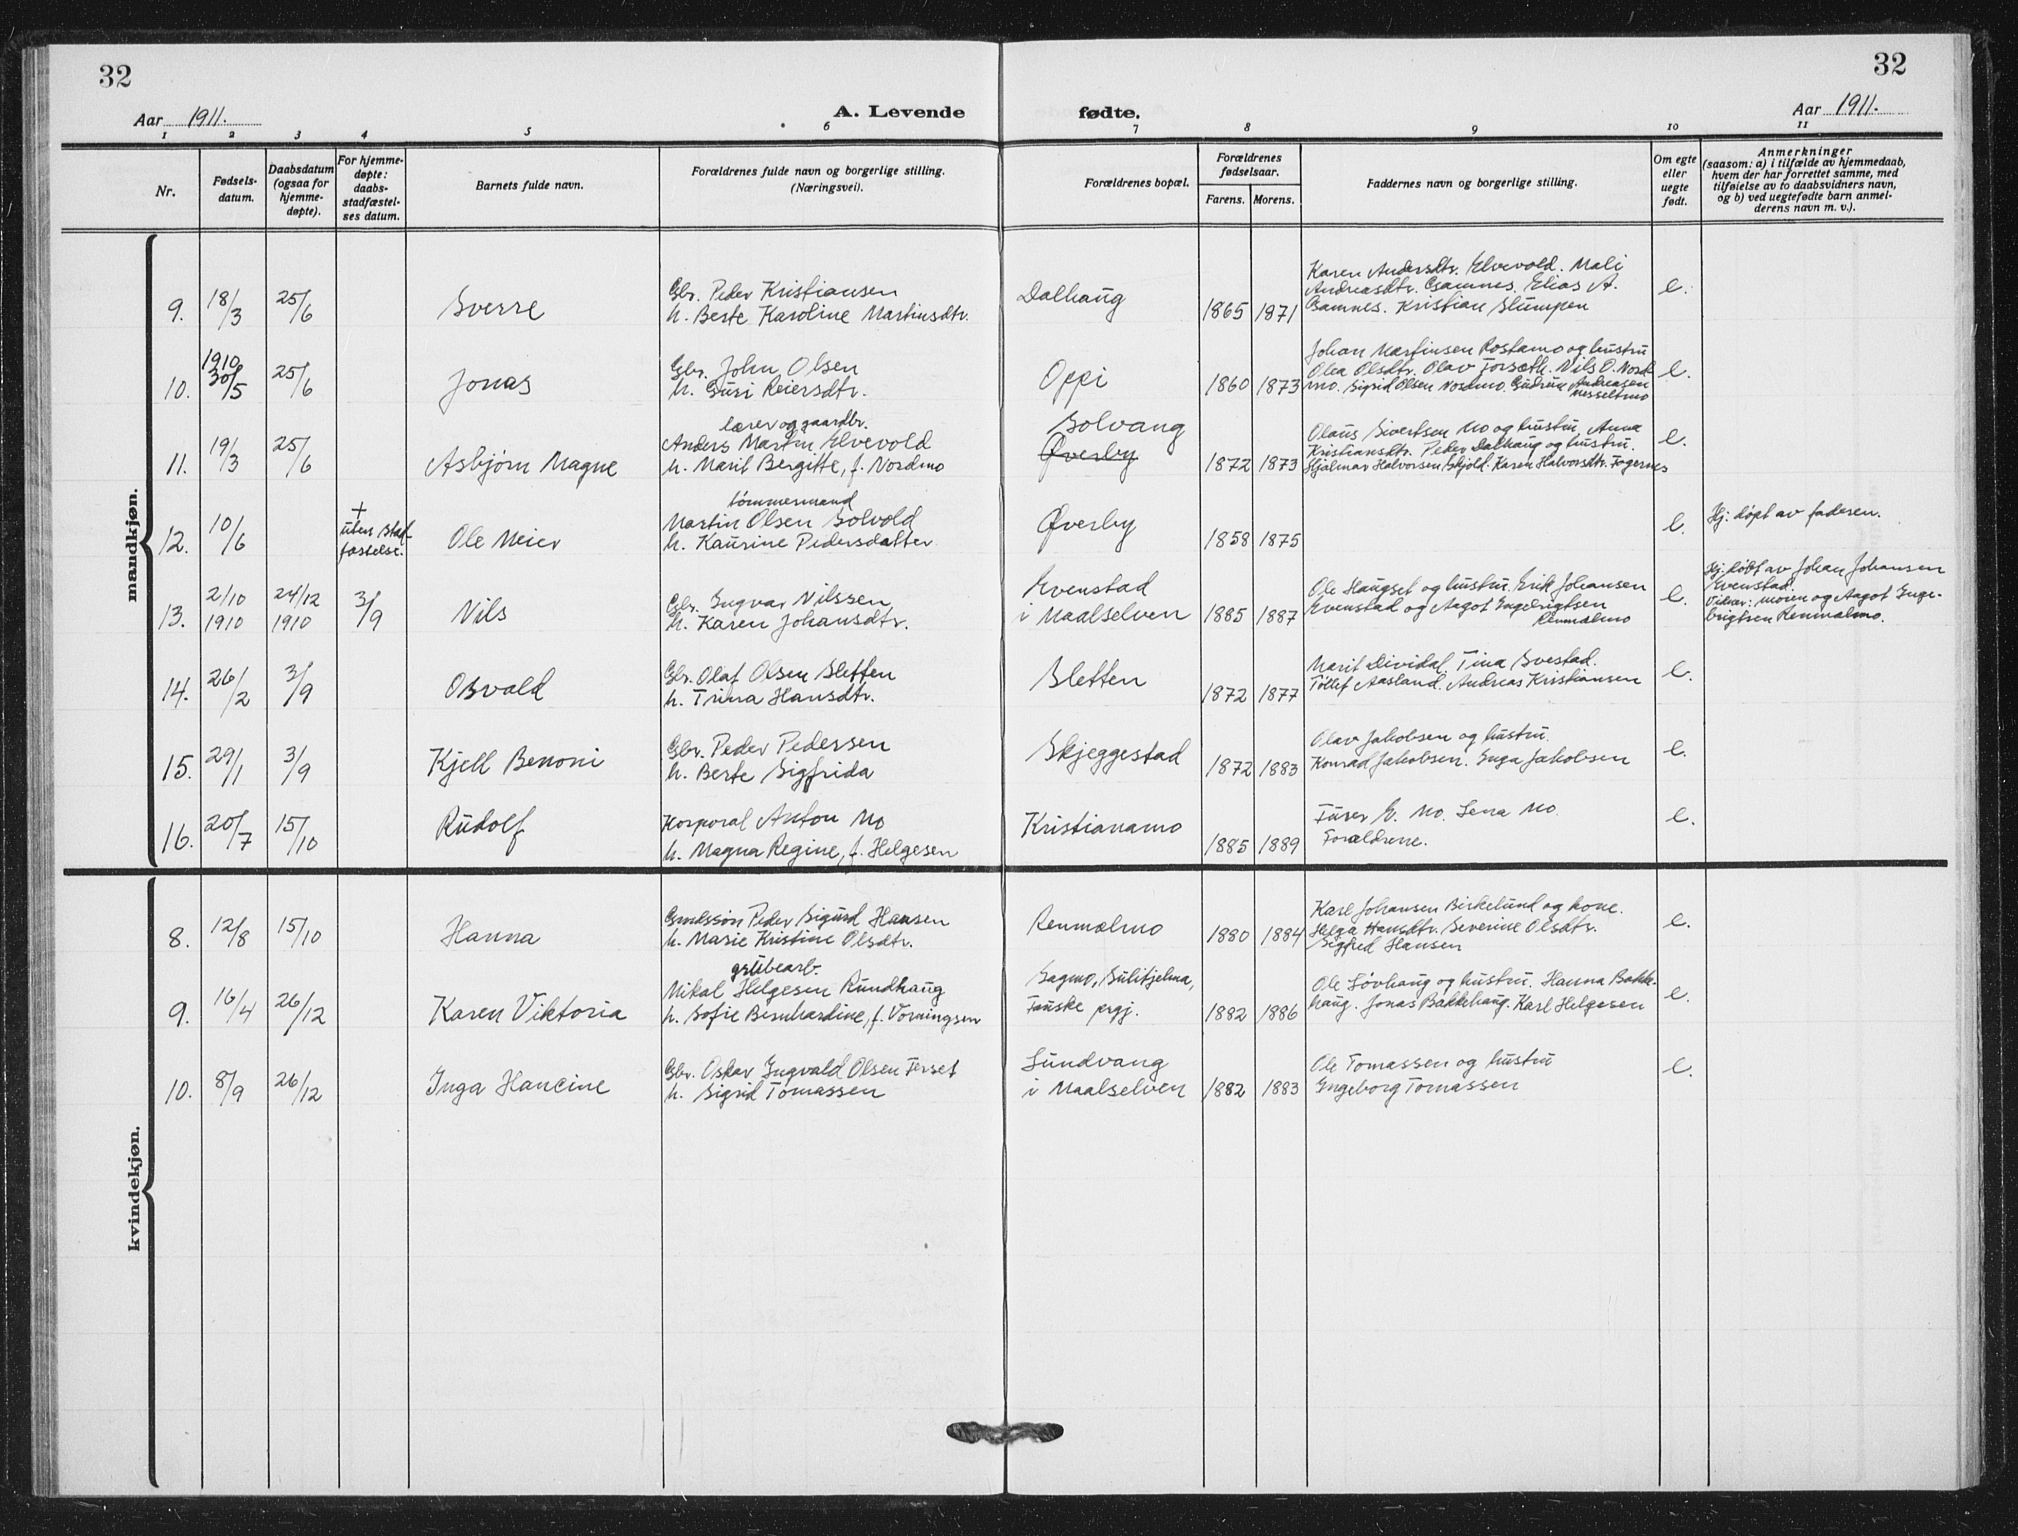 32
32
Aar 1911.
A. Levende
fødte.
Aar 1911.
1 2 3 4 5 6 7 8 9 10 11
Nr.
Fødsels-
datum.
Daabsdatum
(ogsaa for
hjemme-
døpte).
For hjemme-
døpte:
daabs-
stadfæstel-
ses datum.
Barnets fulde navn.
Forældrenes fulde navn og borgerlige stilling.
(Næringsvei).
Forældrenes bopæl.
Forældrenes
fødselsaar.
Farens. Morens.
Faddernes navn og borgerlige stilling.
Om egte
eller
uegte
født.
Anmerkninger
(saasom: a) i tilfælde av hjemmedaab,
hvem der har forrettet samme, med
tilføielse av to daabsvidners navn,
og b) ved uegtefødte barn anmel-
derens navn m. v.).
mandkjøn.
9. 18/3 25/6 Sverre
Gbr. Peder Kristiansen
h. Berte Karoline Martinsdtr.
Dalhaug
1865 1871
Karen Andersdtr. Elvevold. Mali
Andreasdtr. Gamnes. Elias A.
Gamnes. Kristian Slumpen
e.
10. 1910
30/5 25/6 Jonas
Gbr. John Olsen
h. Guri Reiersdtr.
Oppi
1860 1873
Johan Martinsen Rostamo og hustru
Olea Olsdtr. Olav Forseth. Nils O. Nord-
mo. Sigrid Olsen Nordmo. Gudrun Andreasen
Nesseltmo
e.
11. 19/3 25/6 Asbjørn Magne
lærer og gaardbr.
Anders Martin Elvevold
h. Marit Bergitte, f. Nordmo
Solvang
Øverby
1872 1873
Olaus Sivertsen Mo og hustru Anna
Kristiansdtr. Peder Dalhaug og hustru.
Hjalmar Halvorsen Skjold. Karen Halvorsdtr. Fogernes
e.
12. 10/6
+
uten stad-
fæstelse.
Ole Meier
tømmermand
Martin Olsen Solvold
h. Kaurine Pedersdatter
Øverby
1858 1875
e.
Hj. døpt av faderen.
13. 2/10
1910
24/12
1910
3/9 Nils
Gbr. Ingvar Nilssen
h. Karen Johansdtr.
Evenstad
i Maalselven
1885 1887
Ole Haugset og hustru. Erik Johansen
Evenstad og Aagot Ingebrigtsen
Renmælmo
e.
Hj. døbt av Johan Johansen
Evenstad.
Vidner: moren og Aagot Inge-
brigtsen Renmælmo.
14. 26/2 3/9 Osvald
Gbr. Olaf Olsen Sletten
h. Trina Hansdtr.
Sletten
1872 1877
Marit Dividal. Tina Svestad.
Tollef Aasland. Andreas Kristiansen
e.
15. 29/1 3/9 Kjell Benoni
Gbr. Peder Pedersen
h. Berte Sigfrida
Skjeggestad
1872 1883
Olav Jakobsen og hustru.
Konrad Jakobsen. Inga Jakobsen
e.
16. 20/7 15/10 Rudolf
Korporal Anton Mo
h. Magna Regine, f. Helgesen
Kristianamo
1885 1889
Turer E. Mo. Lena Mo.
Forældrene.
e.
kvindekjøn.
8. 12/8 15/10 Hanna
Grndssøn Peder Sigurd Hansen
h. Marie Kristine Olsdtr.
Renmælmo
1880 1884
Karl Johansen Birkelund og kone.
Helga Hansdtr. Severine Olsdtr.
Sigfred Hansen
e.
9. 16/4 26/12 Karen Viktoria
grubearb.
Mikal Helgesen Rundhaug
h. Sofie Bernhardine, f. Vorningsen
Sagmo, Sulitjelma,
Fauske prgj.
1882 1886
Ole Løvhaug og hustru. Hanna Bakke-
haug. Jonas Bakkehaug. Karl Helgesen
e.
10. 8/9 26/12 Inga Hancine
Gbr. Oskar Ingvald Olsen Ferset
h. Sigrid Tomassen
Lundvang
i Maalselven
1882 1883
Ole Tomassen og hustru
Engeborg Tomassen
e.